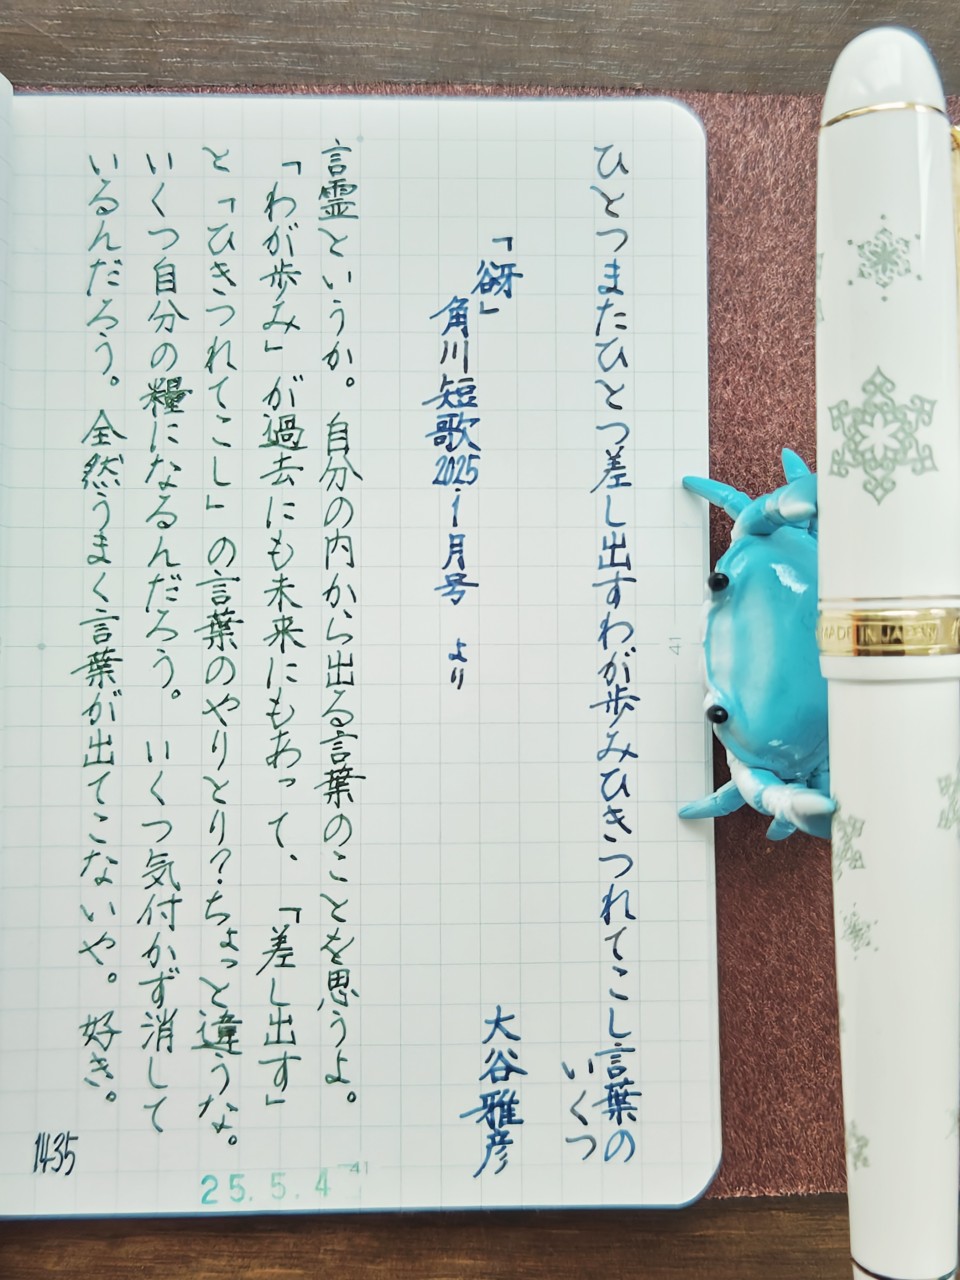 ひとつまたひとつ差し出すわが歩みひきつれてこし言葉の
いくつ
「谺」
角川短歌2025.1月号 より
大谷雅彦
言霊というか。自分の内から出る言葉のことを思うよ。
「わが歩み」が過去にも未来にもあって、「差し出す」
と「ひきつれてこし」の言葉のやりとり?ちょっと違うな。
いくつ自分の糧になるんだろう。いくつ気付かず消して
いるんだろう。全然うまく言葉が出てこないや。好き。
1435
25.5.4
41
41
MADE IN JAPAN